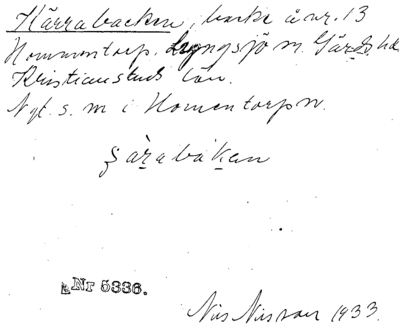 Kärrabacken, backe å nr. 13
Hommentorp. Lyngsjö sn. Gärds hd
Kristianstads län.
Nyt. s. m i Homentorp n.
ʂàrabakan
Nr 5336.
Nils Nilsson 1933.